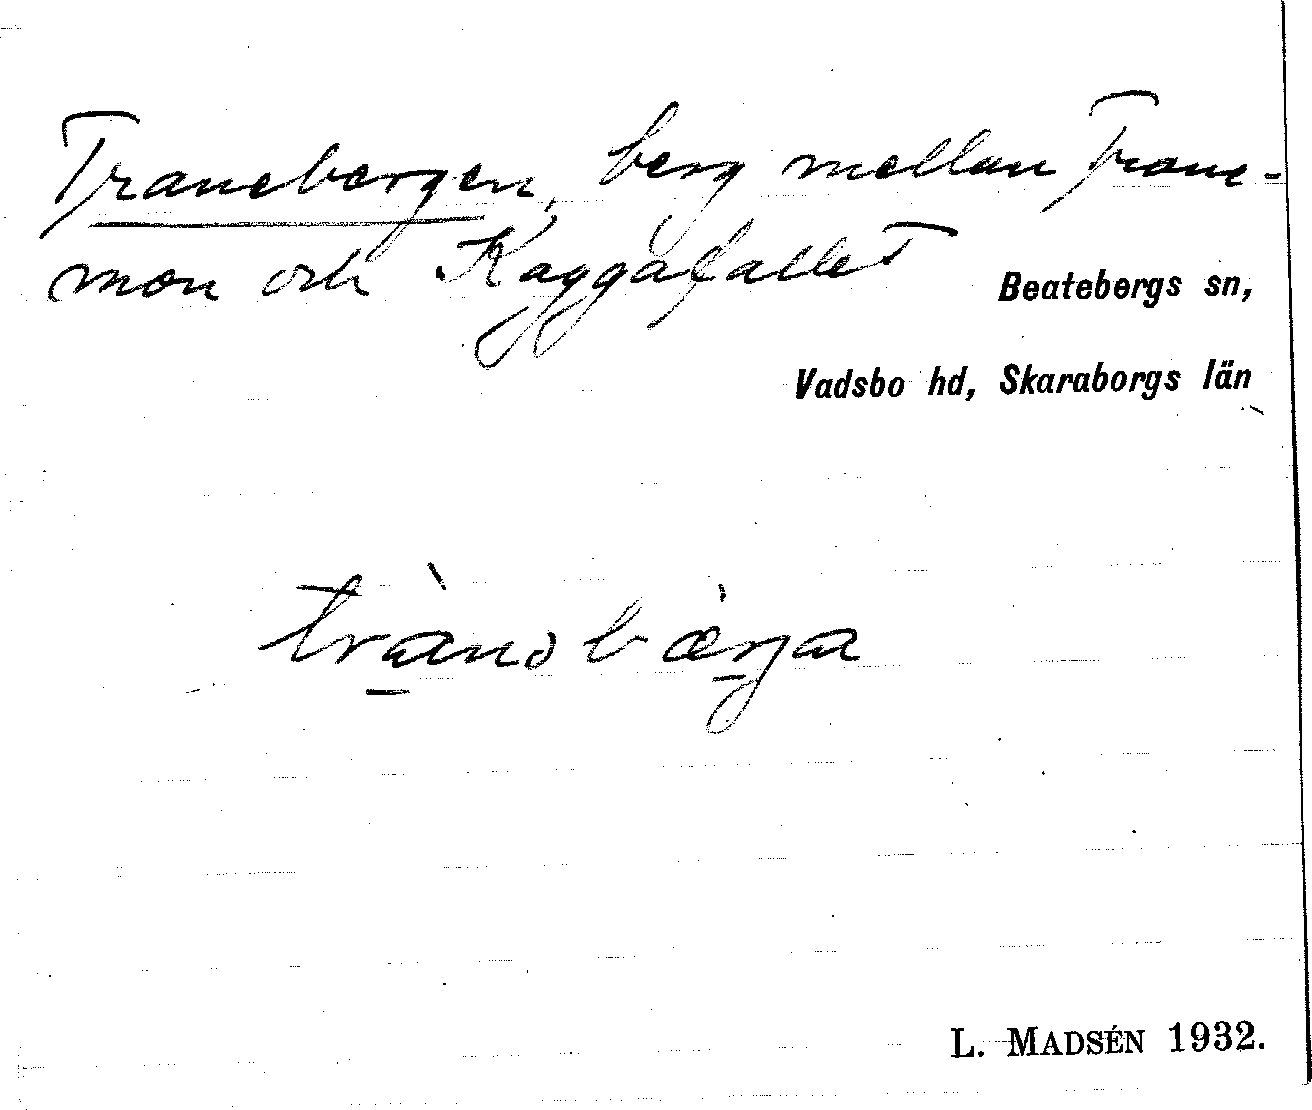 Tranebergen, berg mellan Trane-
mon och Kaggåfallet
Beatebergs sn,
Vadsbo hd, Skaraborgs län
L. MADSÉN 1932.